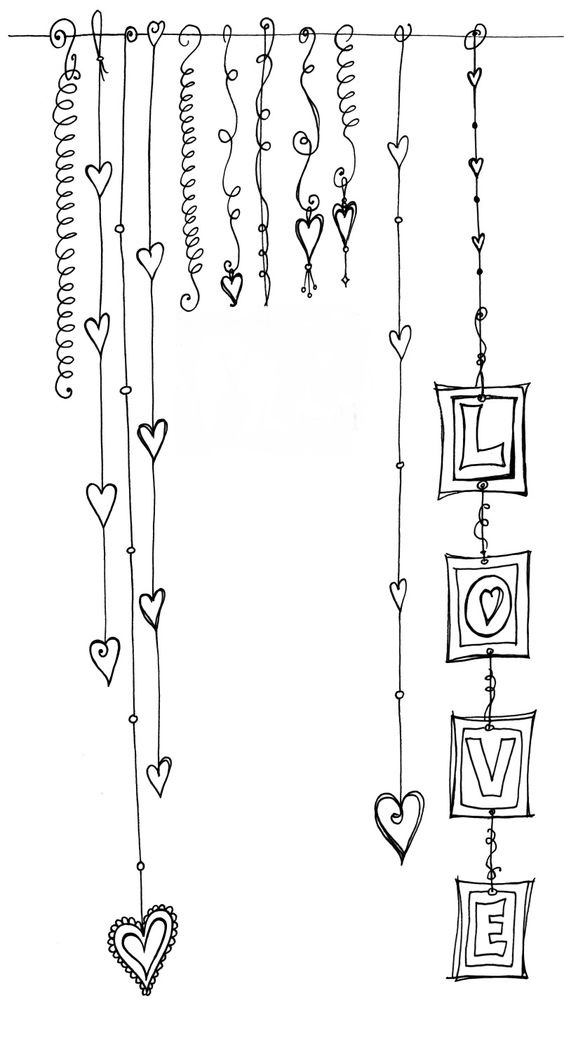 L
O
V
E